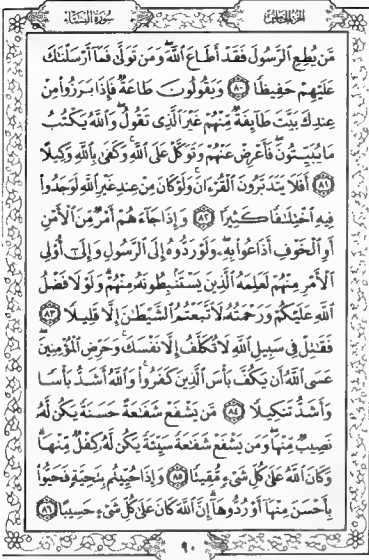 سورة النساء
الجزء الخامس
مَّن يُطِعِ ٱلرَّسُولَ فَقَدْ أَطَاعَ ٱللَّهَ وَمَن تَوَلَّىٰ فَمَآ أَرْسَلْنَٰكَ
عَلَيْهِمْ حَفِيظًا ٨٠ وَيَقُولُونَ طَاعَةٌ فَإِذَا بَرَزُوا۟ مِنْ
عِندِكَ بَيَّتَ طَآئِفَةٌ مِّنْهُمْ غَيْرَ ٱلَّذِى تَقُولُ وَٱللَّهُ يَكْتُبُ
مَا يُبَيِّتُونَ فَأَعْرِضْ عَنْهُمْ وَتَوَكَّلْ عَلَى ٱللَّهِ وَكَفَىٰ بِٱللَّهِ وَكِيلًا
٨١ أَفَلَا يَتَدَبَّرُونَ ٱلْقُرْءَانَ وَلَوْ كَانَ مِنْ عِندِ غَيْرِ ٱللَّهِ لَوَجَدُوا۟
فِيهِ ٱخْتِلَٰفًا كَثِيرًا ٨٢ وَإِذَا جَآءَهُمْ أَمْرٌ مِّنَ ٱلْأَمْنِ
أَوِ ٱلْخَوْفِ أَذَاعُوا۟ بِهِۦ وَلَوْ رَدُّوهُ إِلَى ٱلرَّسُولِ وَإِلَىٰٓ أُو۟لِى
ٱلْأَمْرِ مِنْهُمْ لَعَلِمَهُ ٱلَّذِينَ يَسْتَنۢبِطُونَهُۥ مِنْهُمْ وَلَوْلَا فَضْلُ
ٱللَّهِ عَلَيْكُمْ وَرَحْمَتُهُۥ لَٱتَّبَعْتُمُ ٱلشَّيْطَٰنَ إِلَّا قَلِيلًا ٨٣
فَقَٰتِلْ فِى سَبِيلِ ٱللَّهِ لَا تُكَلَّفُ إِلَّا نَفْسَكَ وَحَرِّضِ ٱلْمُؤْمِنِينَ
عَسَى ٱللَّهُ أَن يَكُفَّ بَأْسَ ٱلَّذِينَ كَفَرُوا۟ وَٱللَّهُ أَشَدُّ بَأْسًا
وَأَشَدُّ تَنكِيلًا ٨٤ مَّن يَشْفَعْ شَفَٰعَةً حَسَنَةً يَكُن لَّهُۥ
نَصِيبٌ مِّنْهَا وَمَن يَشْفَعْ شَفَٰعَةً سَيِّئَةً يَكُن لَّهُۥ كِفْلٌ مِّنْهَا
وَكَانَ ٱللَّهُ عَلَىٰ كُلِّ شَىْءٍ مُّقِيتًا ٨٥ وَإِذَا حُيِّيتُم بِتَحِيَّةٍ فَحَيُّوا۟
بِأَحْسَنَ مِنْهَآ أَوْ رُدُّوهَآ إِنَّ ٱللَّهَ كَانَ عَلَىٰ كُلِّ شَىْءٍ حَسِيبًا ٨٦
٩٠